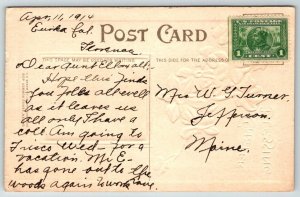 Apr. 16, 1914
Eureka Cal.
Florence
POST CARD
THIS SIDE FOR THE ADDRESS
Dear Aunt Ella & all:-
Hope this finds
you folks all well
as it leaves us
all only I have a
cold. Am going to
Frisco Wed- for a
vacation. Mr E-
has gone out to the
woods again
Mrs W. G. Turner
Jefferson
Maine.
1 CENT 1